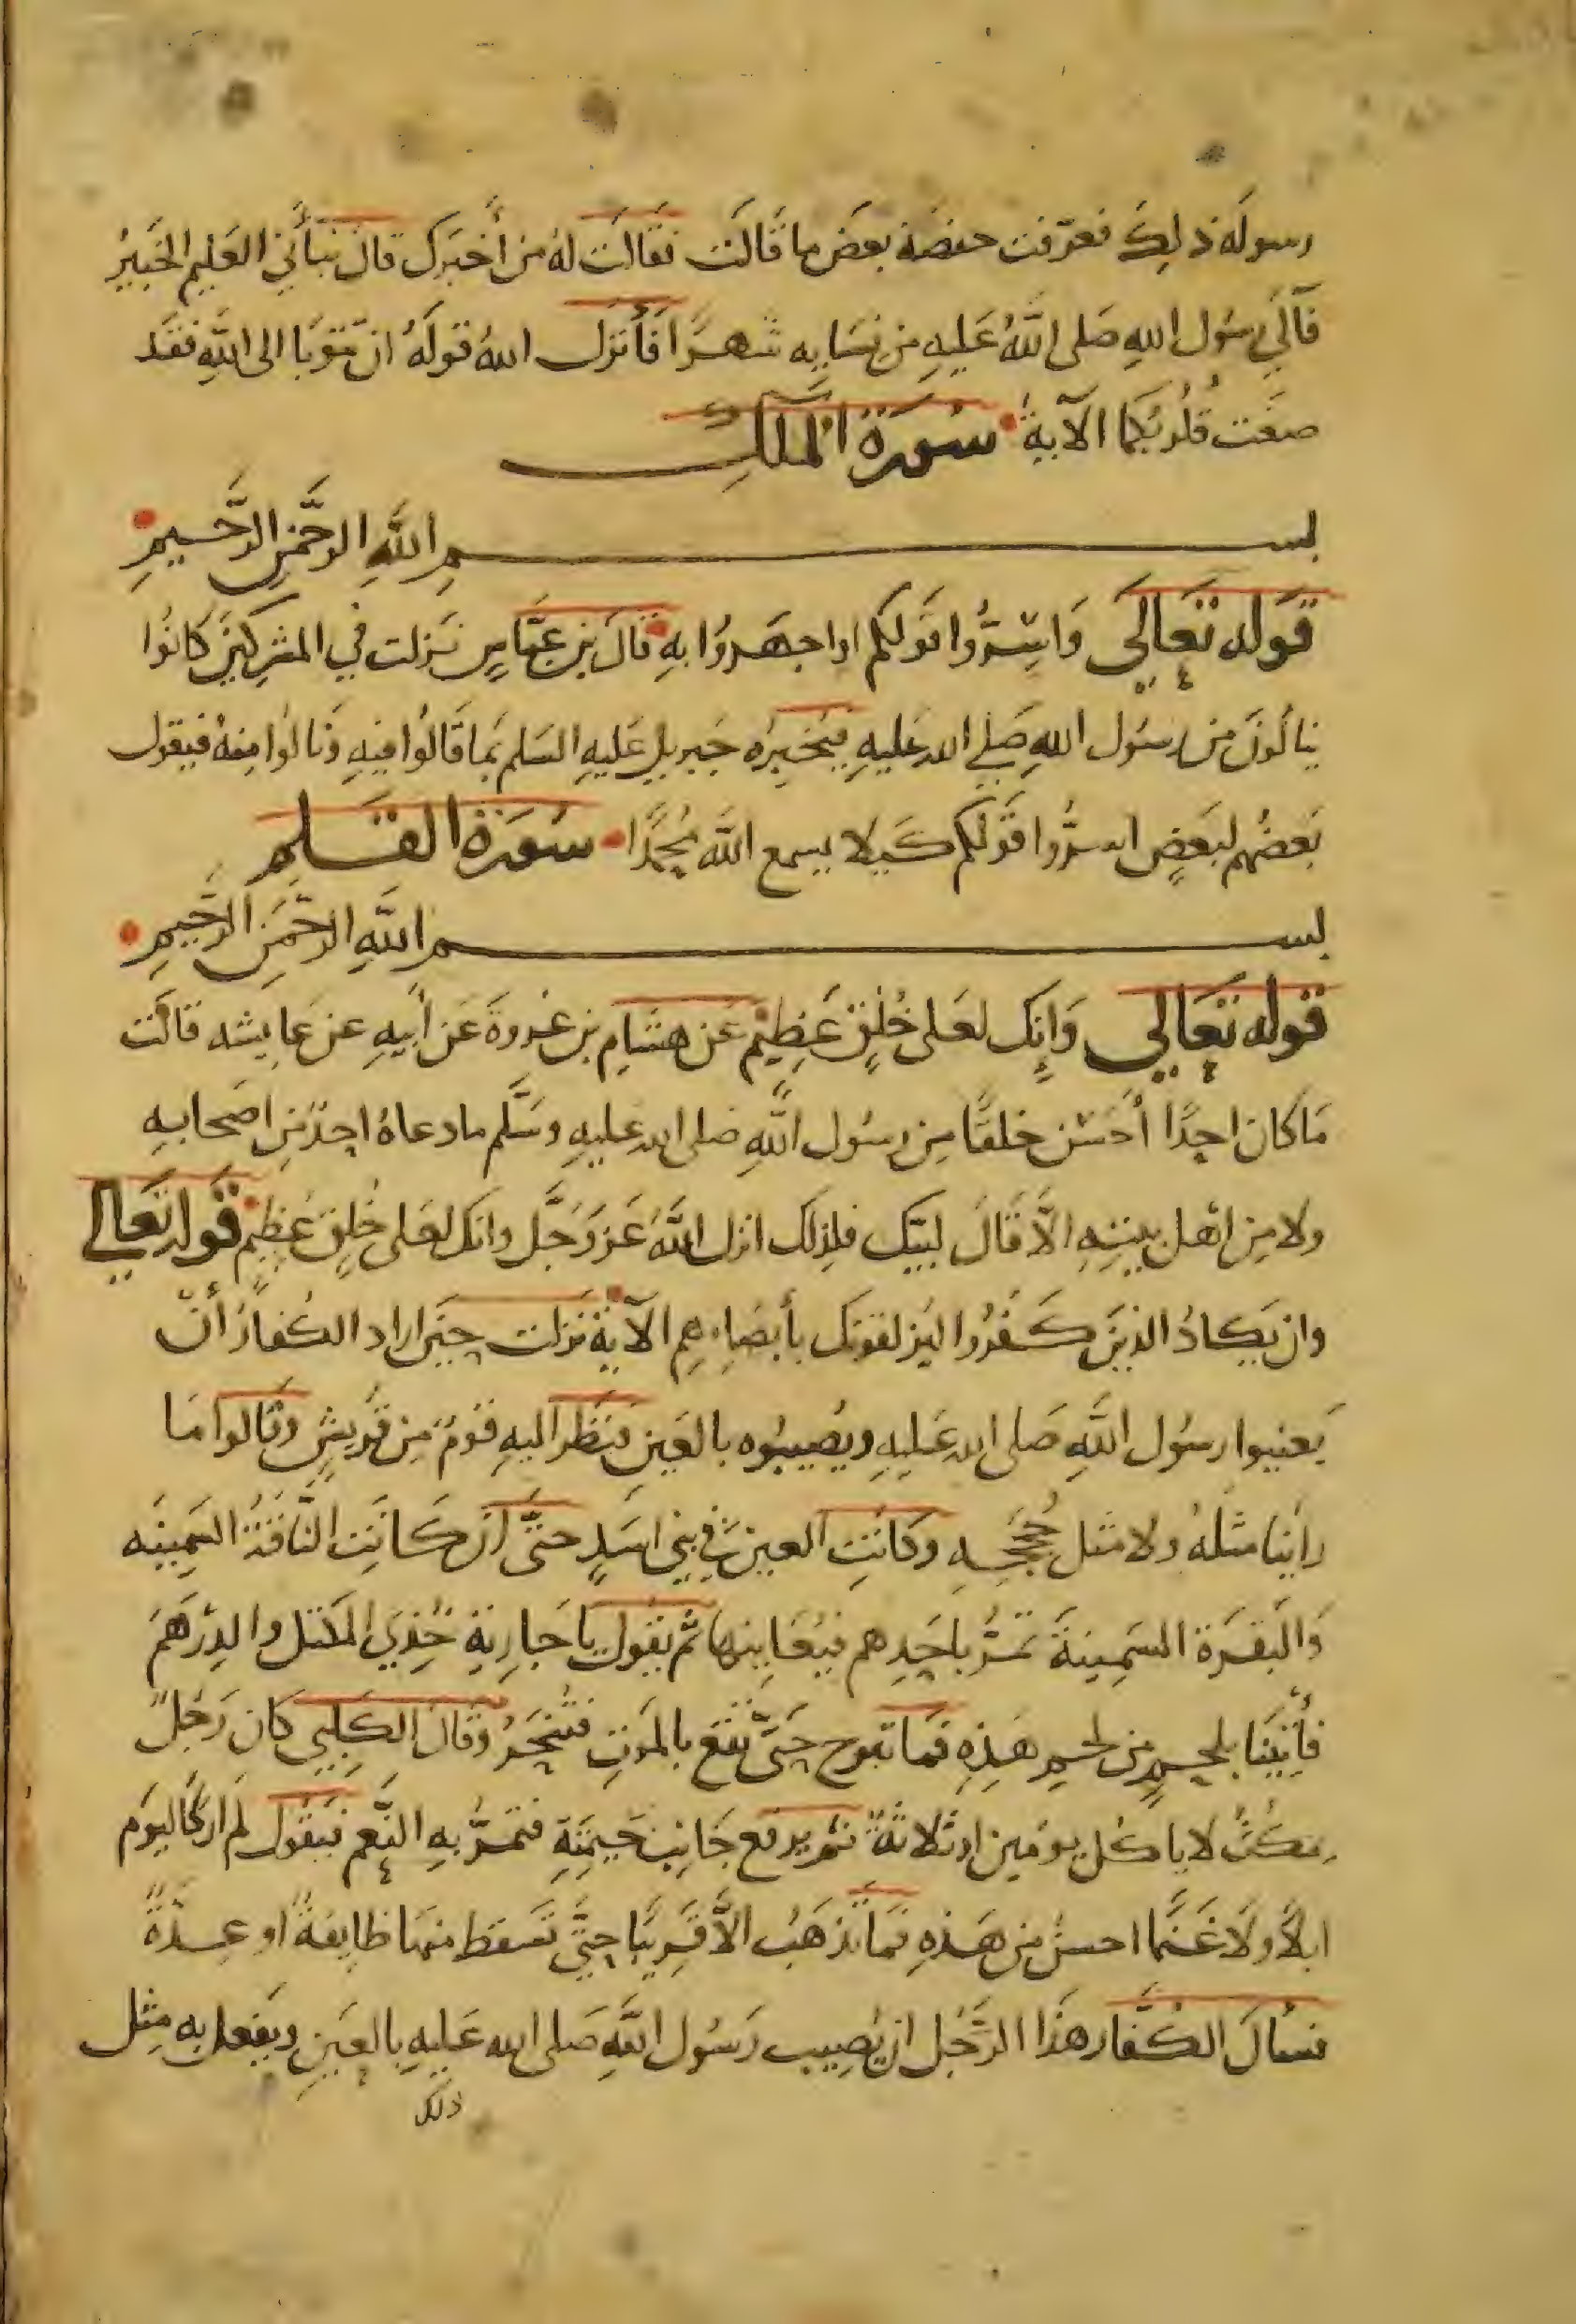 رسوله ذلك فعرّفت حفصة بعض ما قالت فقالت له من أخبرك قال نبأني العليم الخبير
فآلى رسول الله صلى الله عليه من نسايه شهرًا فأنزل الله قوله ان تتوبا الى الله فقد
صغت قلوبكما الآية سورة الملك
بسم الله الرحمن الرحيم
قوله تعالى وَاسِرُّوا قولكم او اجهروا به قال بن عباس نزلت في المشركين كانوا
ينالون من رسول الله صلى الله عليه فيخبره جبريل عليه السلم بما قالوا فيه ونالوا منه فيقول
بعضهم لبعض اسرّوا قولكم كيلا يسمع الله محمدًا سورة القلم
بسم الله الرحمن الرحيم
قوله تعالى وَإنك لعلى خُلُقٍ عَظِيم عن هشام بن عروة عن أبيه عن عايشه قالت
ما كان احدًا أحسن خلقًا من رسول الله صلى الله عليه وسلّم ما دعاه احد من اصحابه
ولا من اهل بيته الاّ قال لبيك فلذلك انزل الله عز وجل وانك لعلى خُلُق عظيم قوله تعالى
وان يكاد الذين كفروا ليزلقونك بأبصارهم الآية نزلت حين اراد الكفار أن
يعنيوا رسول الله صلى الله عليه ويصيبوه بالعين فنظر اليه قوم من قريش وقالوا ما
راينا مثله ولا مثل حججه وكانت العين في بني اسد حتى ان كانت الناقة السمينه
والبقرة السمينة تمرّ باحدهم فيعاينها ثم يقول يا جارية خذي المكتل والدرهم
فأتينا بلحم من لحم هذه فما تبرح حتى تقع بالموت فتنحر وقال الكلبي كان رجل
يمكث لا ياكل يومين او ثلاثة ثم يرفع جانب خيمته فتمرّ به النعم فيقول لم ار كاليوم
ابلاً ولا غنمًا احسن من هذه فما تذهب الاّ قريبًا حتى تسقط منها طايفة او عدّة
فسأل الكفار هذا الرجل ان يصيب رسول الله صلى الله عليه بالعين ويفعل به مثل
ذلك